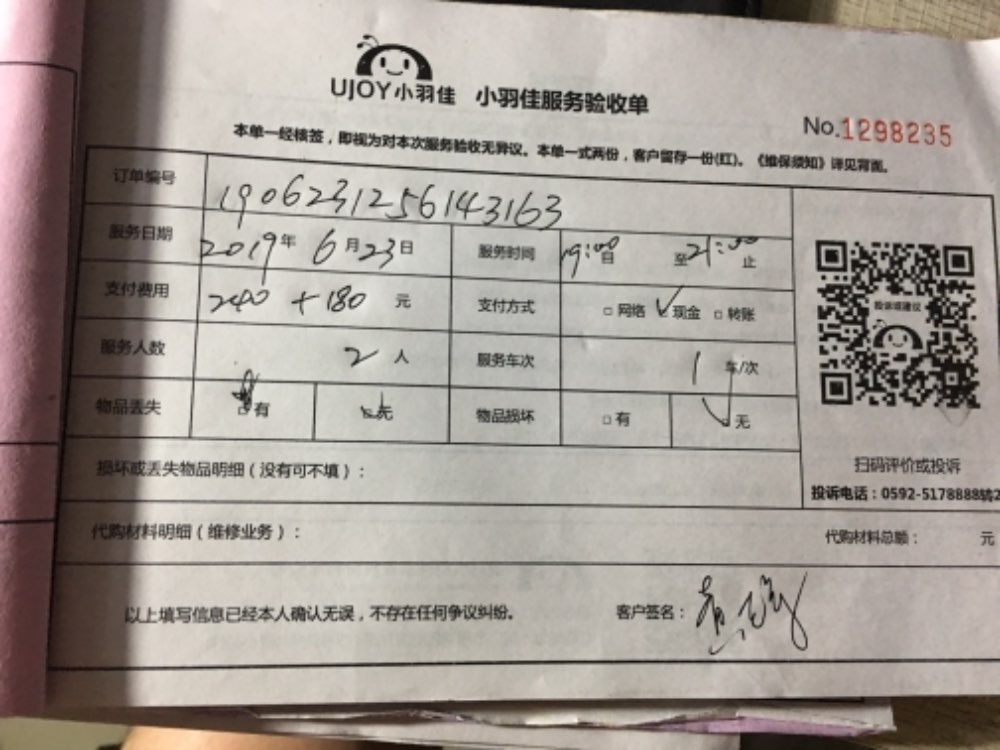 UJOY小羽佳 小羽佳服务验收单
No.1298235
本单一经核签，即视为对本次服务验收无异议。本单一式两份，客户留存一份(红)。《维保须知》详见背面。
订单编号 1906231256143163
服务日期 2019年 6月23日 服务时间 19:00自 至21:00止
支付费用 240 + 180 元 支付方式 □网络 ✓现金 □转账
服务人数 2 人 服务车次 1 车/次
物品丢失 □有 ☑无 物品损坏 □有 ✓无
损坏或丢失物品明细（没有可不填）：
投诉或建议
扫码评价或投诉
投诉电话：0592-5178888转2
代购材料明细（维修业务）： 代购材料总额： 元
以上填写信息已经本人确认无误，不存在任何争议纠纷。 客户签名：